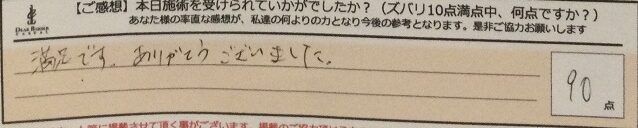 【ご感想】本日施術を受けられていかがでしたか？（ズバリ10点満点中、何点ですか？）
あなた様の率直な感想が、私達の何よりの力となり今後の参考となります。是非ご協力お願いします
満足です。ありがとうございました。
90
点